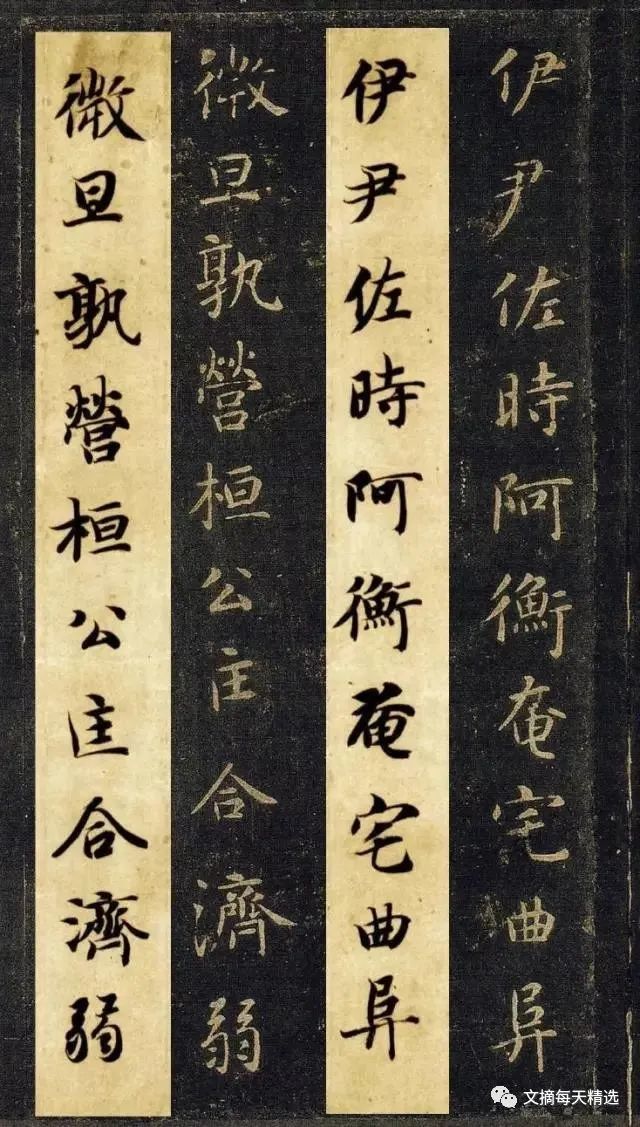 伊尹佐時阿衡奄宅曲阜
伊尹佐時阿衡奄宅曲阜
微旦孰營桓公匡合濟弱
微旦孰營桓公匡合濟弱
文摘每天精选